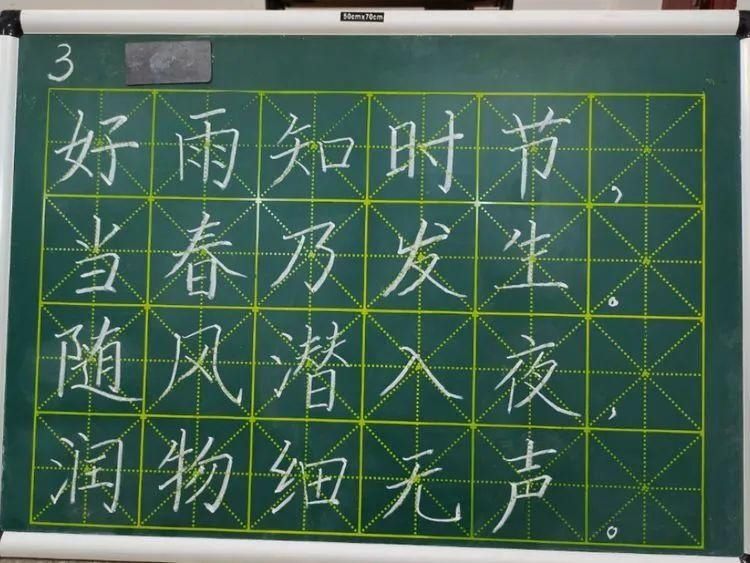 50cmx70cm
3
好雨知时节，
当春乃发生。
随风潜入夜，
润物细无声。